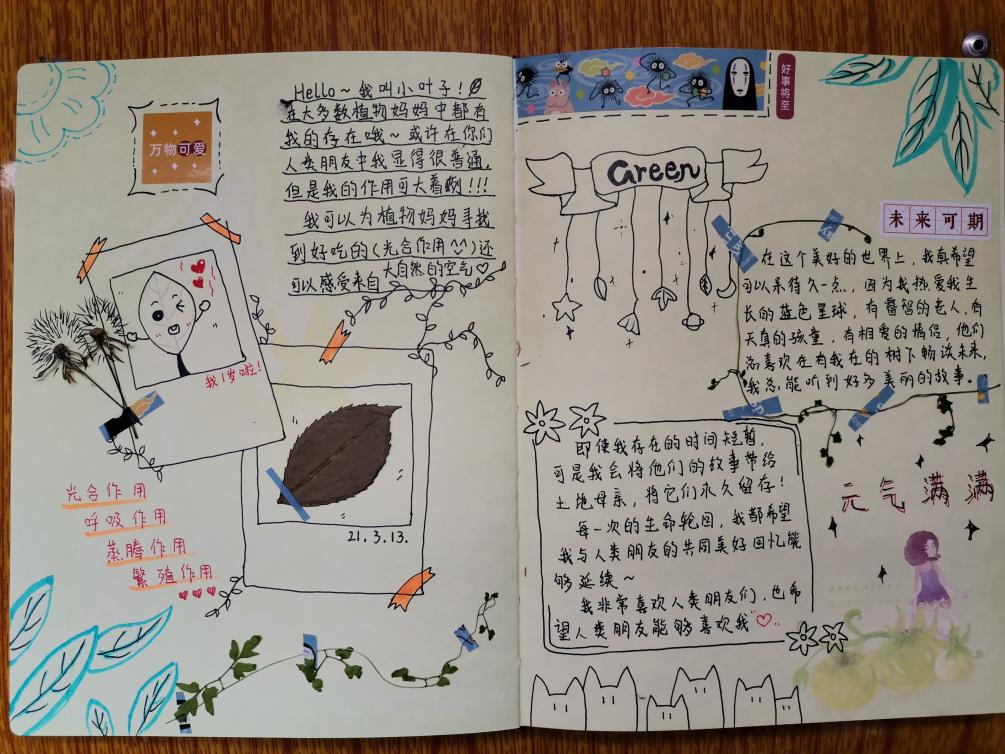 万物可爱
Hello~我叫小叶子!
在大多数植物妈妈中都有
我的存在哦~或许在你们
人类朋友中我显得很普通,
但是我的作用可大着嘞!!!
我可以为植物妈妈寻找
到好吃的(光合作用^^)还
可以感受来自大自然的空气♡
我1岁啦!
21.3.13.
光合作用
呼吸作用
蒸腾作用
繁殖作用
好事将至
Green
未来可期
在这个美好的世界上,我真希望
可以呆得久一点,因为我热爱我生
长的蓝色星球,有睿智的老人,有
天真的孩童,有相爱的情侣,他们
总喜欢在有我在的树下畅谈未来,
我总能听到好多美丽的故事。
即使我存在的时间短暂,
可是我会将他们的故事带给
土地母亲,将它们永久留存!
每一次的生命轮回,我都希望
我与人类朋友的共同美好回忆能
够延续~
我非常喜欢人类朋友们,也希
望人类朋友能够喜欢我"♡"..
元气满满